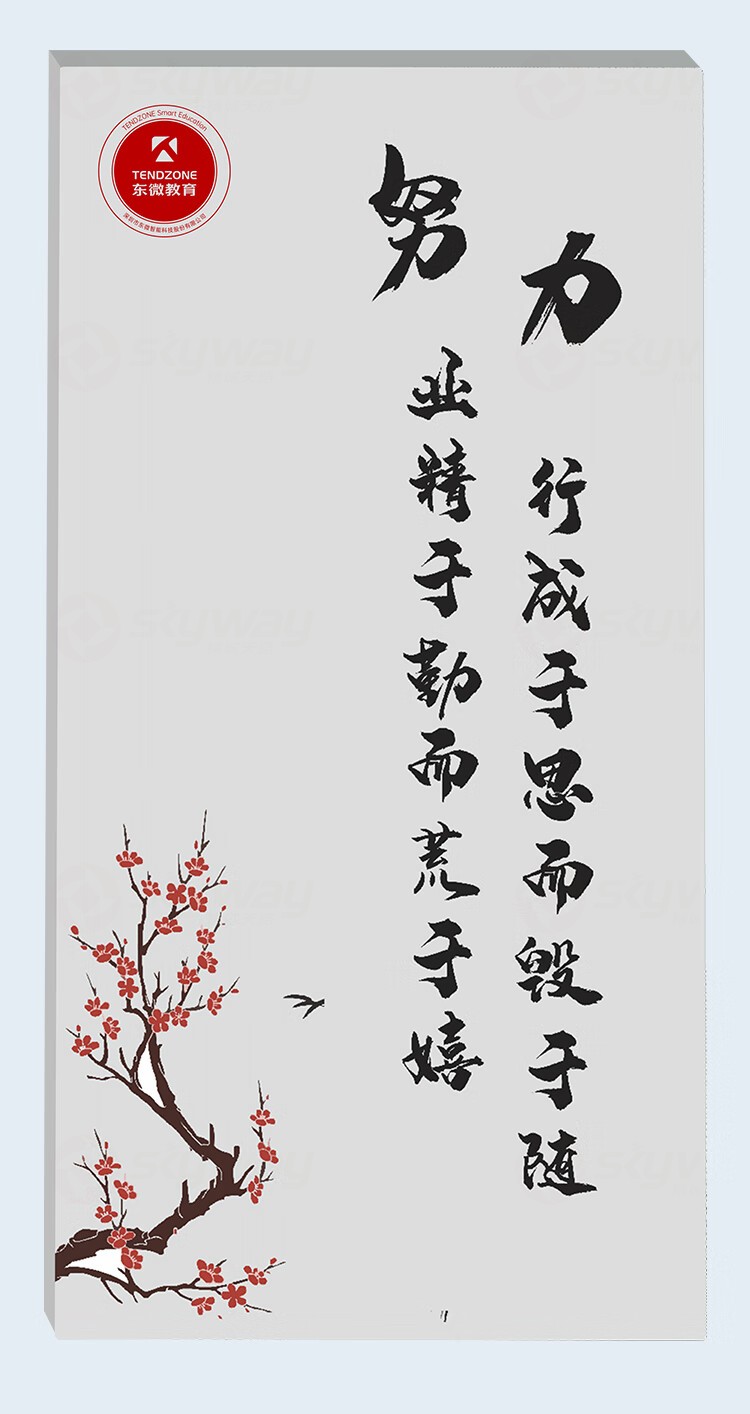 TENDZONE Smart Education
TENDZONE
东微教育
深圳市东微智能科技股份有限公司
努力
业精于勤而荒于嬉
行成于思而毁于随
skyway
skyway
skyway
skyway
skyway